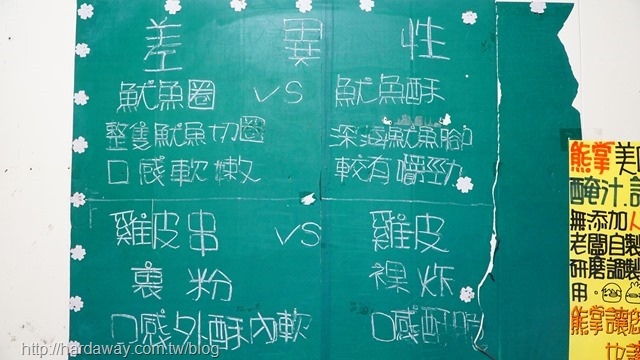 差異性
魷魚圈 VS 魷魚酥
整隻魷魚切圈 深海魷魚腳
口感軟嫩 較有嚼勁
雞皮串 VS 雞皮
裹粉 裸炸
口感外酥內軟 口感酥脆
熊掌美
醃汁.
無添加人
老闆自製
研磨調製
用.
熊掌讓
http://hardaway.com.tw/blog